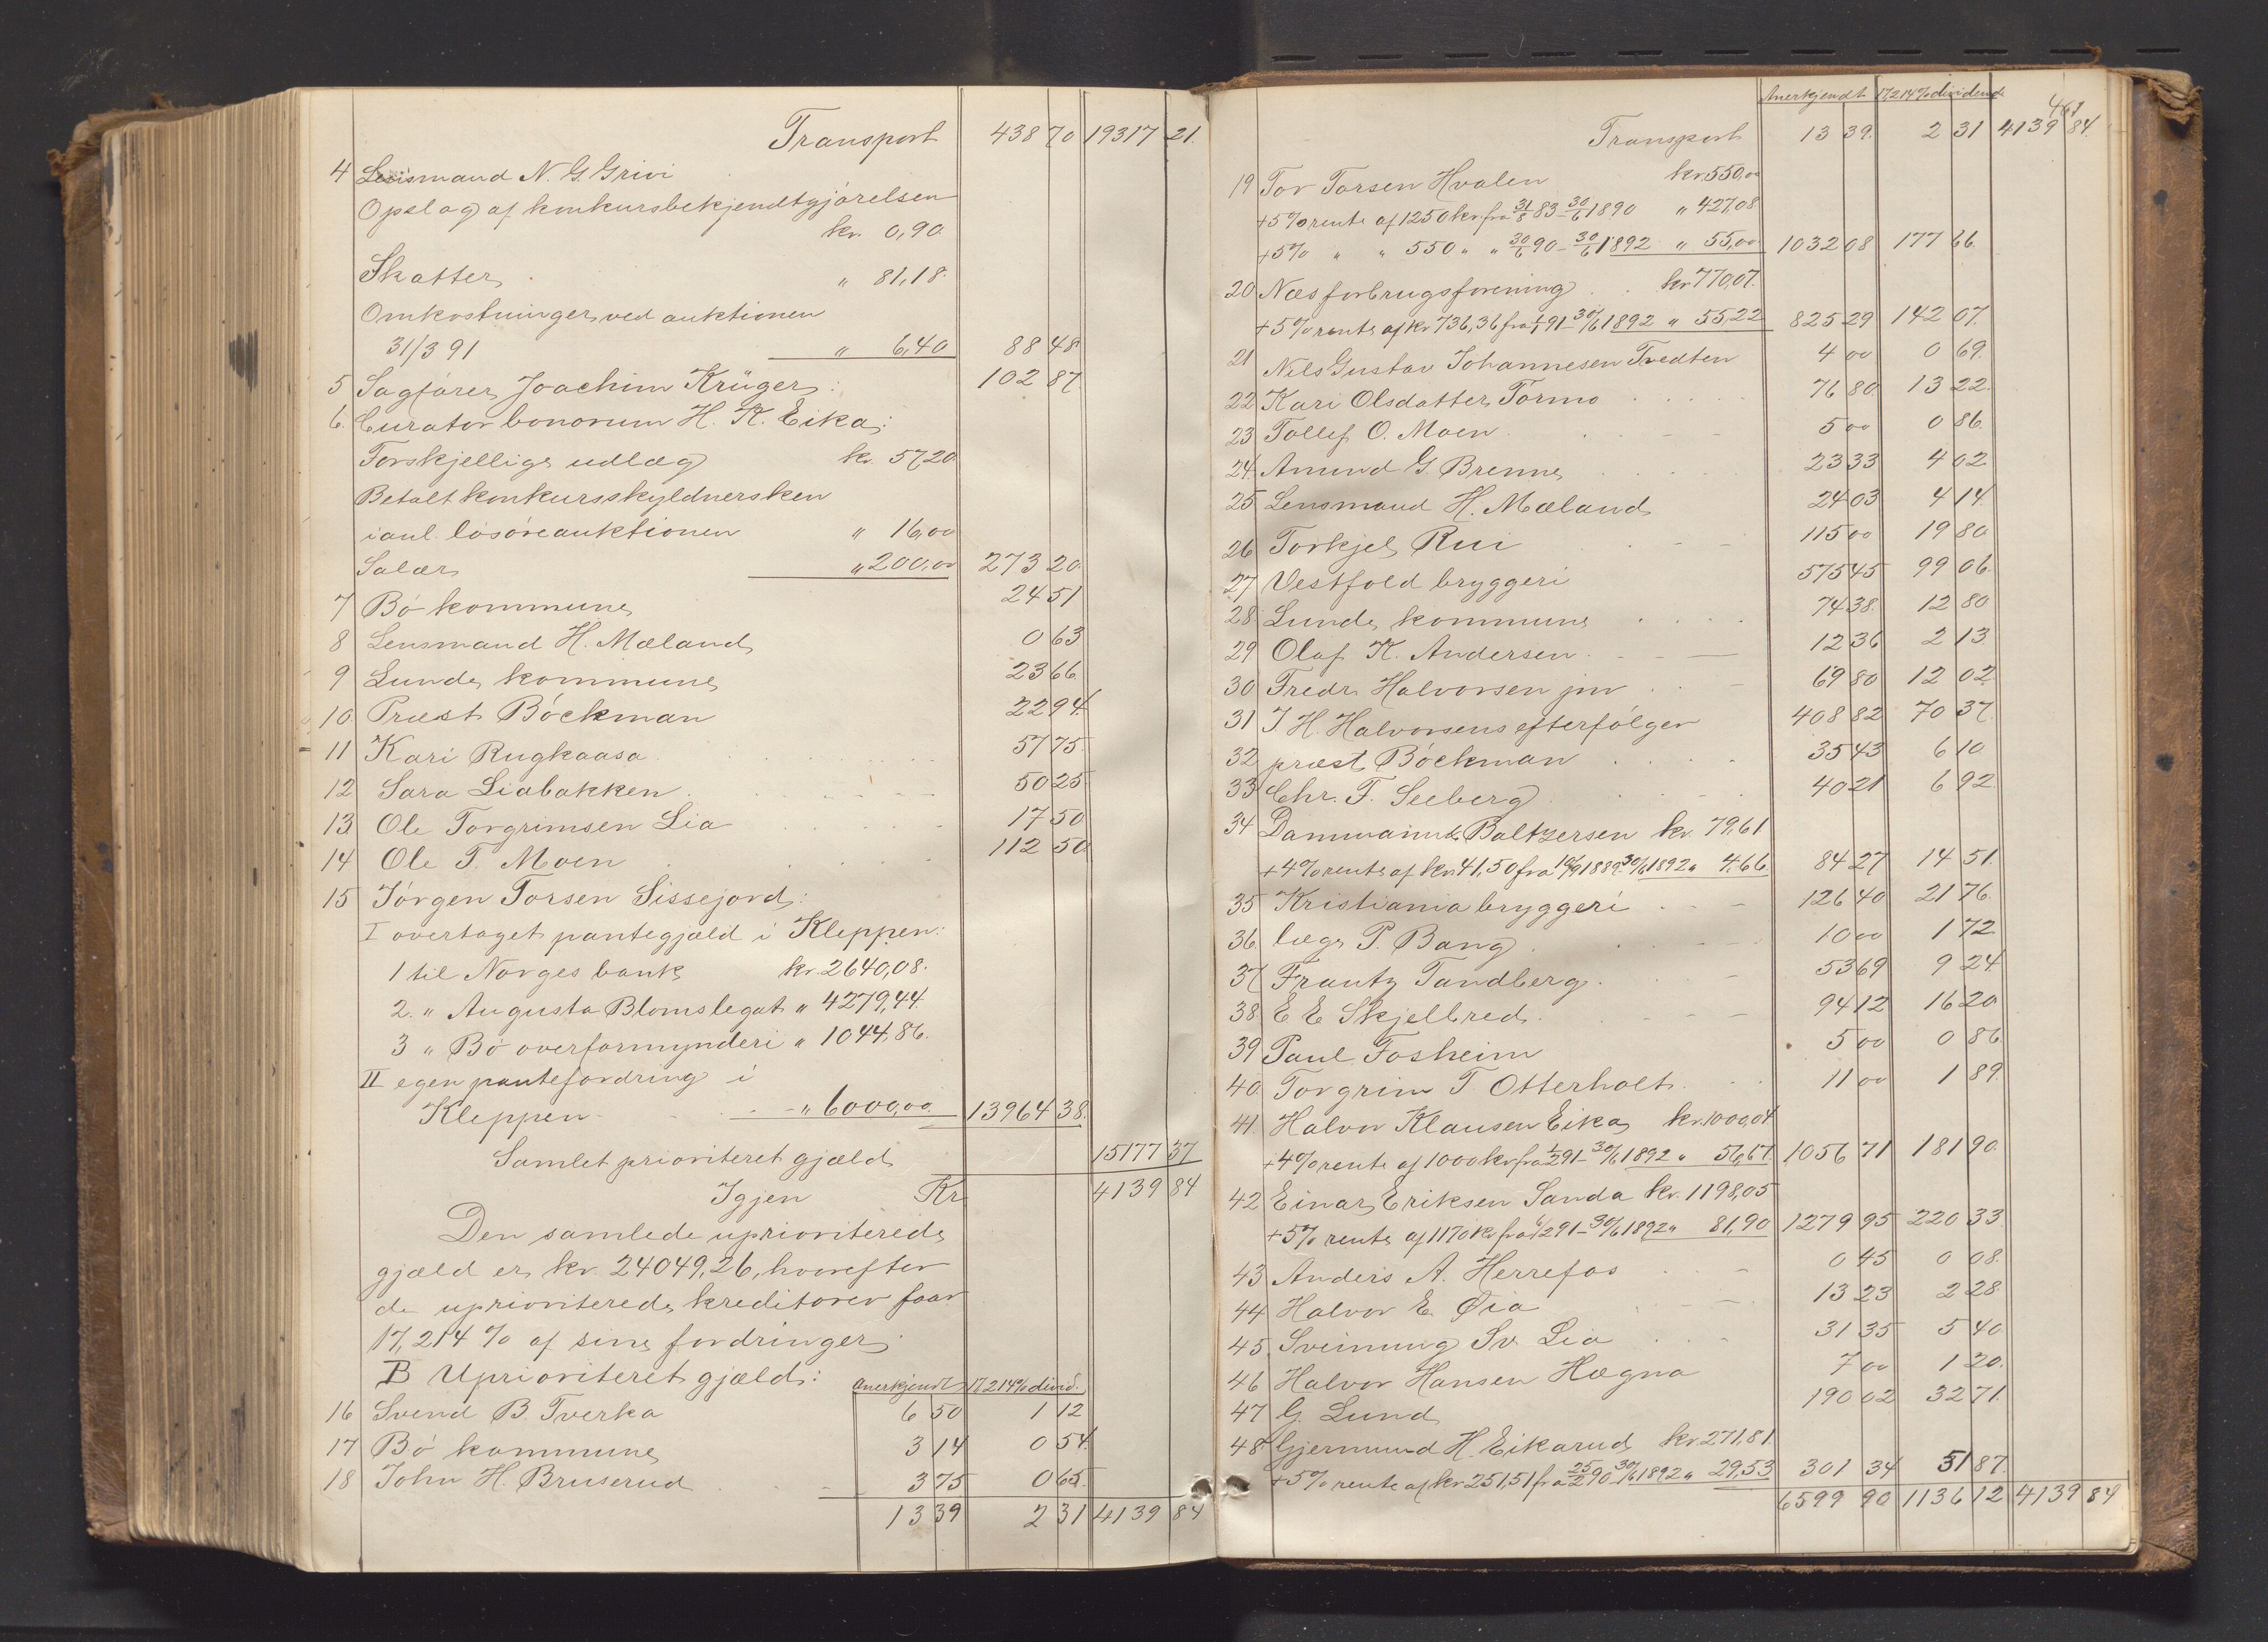 Transport 438 70 19317 21.
4 Lensmand N. G. Grivi
Opslag af konkursbekjendtgjørelsen
kr. 0,90.
Skatter " 81,18.
Omkostninger ved auktionen
31/3 91 " 6,40 88 48
5 Sagfører Joachim Krüger: 102 87.
6. Curator bonorum H. K. Eika:
Forskjellige udlæg kr. 57,20
Betalt konkursskyldnersken
i anl. løsøreauktionen " 16,00
Salær " 200,00 273 20.
7 Bø kommune 24 51
8 Lensmand H. Mæland 0 63
9 Lunde kommune 23 66.
10. Præst Böckman 22 94.
11 Kari Rugkaasa 57 75.
12 Sara Liabakken 50 25.
13 Ole Torgrimsen Lia 17 50
14 Ole T. Moen 112 50
15 Jørgen Torsen Sissejord:
I overtaget pantegjæld i Kleppen:
1 til Norges bank kr. 2640,08.
2. " Augusta Blomslegat " 4279,44.
3 " Bø overformynderi " 1044,86.
II egen pantefordring i
Kleppen " 6000,00. 13964 38.
Samlet prioriteret gjæld 15177 37
Igjen Kr 4139 84
Den samlede uprioriterede
gjæld er kr. 24049,26, hvorefter
de uprioriterede kreditorer faar
17,214 % af sine fordringer.
B Uprioriteret gjæld: Anerkjendt 17,214% divid.
16 Svend B. Tverka 6 50 1 12
17 Bø kommune 3 14 0 54.
18 John H. Bruserud 3 75 0 65.
13 39 2 31 4139 84
Anerkjendt 17,214% dividende
461
Transport 13 39. 2 31 4139 84.
19 Tov Torsen Hvalen kr. 550,00
+5% rente af 1250 kr. fra 31/8 83 - 30/6 1890 " 427,08
+5% " " 550 " " 30/6 90 - 30/6 1892 " 55,00 1032 08 177 66.
20 Næs forbrugsforening kr. 770,07.
+5% rente af kr 736,36 fra 1/1 91 - 30/6 1892 " 55,22 825 29 142 07.
21 Nils Gustav Johannesen Tvedten 4 00 0 69.
22 Kari Olsdatter Tormo 76 80. 13 22.
23 Tollef O. Moen 5 00 0 86.
24. Amund G. Brenne 23 33 4 02
25 Lensmand H. Mæland 24 03 4 14.
26 Torkjel Rui 115 00 19 80
27 Vestfold bryggeri 575 45 99 06.
28. Lunde kommune 74 38. 12 80
29 Olaf K. Andersen 12 36 2 13.
30. Fredr. Halvorsen jnr 69 80 12 02.
31 J H. Halvorsens efterfølger 408 82 70 37.
32 præst Böckman 35 43 6 10
33 Chr. F. Seeberg 40 21 6 92.
34 Dammann & Baltzersen kr. 79,61
+4% rente af kr. 41,50 fra 10/9 1889 - 30/6 1892 " 4,66. 84 27 14 51.
35 Kristiania bryggeri 126 40 21 76.
36. læge P. Bang 10 00 1 72
37 Frantz Tandberg 53 69 9 24
38. E E Skjelbred 94 12 16 20
39 Paul Fosheim 5 00 0 86
40. Torgrim T. Otterholt 11 00 1 89.
41. Halvor Klausen Eika kr. 1000,04
+4% rente af 1000 kr fra 1/2 91 - 30/6 1892 " 56,67 1056 71 181 90.
42 Einar Eriksen Sanda kr. 1198,05
+5% rente af 1170 kr fra 6/2 91 - 30/6 1892 " 81,90 1279 95 220 33.
43 Anders A. Herrefos 0 45 0 08.
44 Halvor E. Øia 13 23 2 28.
45. Sveinung Sv. Lia 31 35 5 40.
46 Halvor Hansen Hægna 7 00 1 20.
47 G. Lund 190 02 32 71.
48 Gjermund H. Eikarud kr. 271,81.
+5% rente af kr 251,51 fra 25/2 90 - 30/6 1892 " 29,53 301 34 51 87.
6599 90 1136 12 4139 84